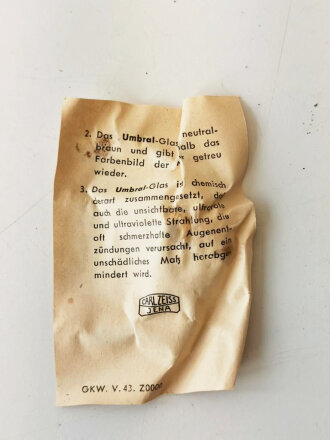 2. Das Umbral-Glas neutral-
braun und gibt halb das
Farbenbild der getreu
wieder.
3. Das Umbral-Glas ist chemisch
derart zusammengesetzt, da
auch die unsichtbare, ultrarote
und ultraviolette Strahlung, die
oft schmerzhafte Augenent-
zündungen verursacht, auf ein
unschädliches Maß herabge
mindert wird.
CARL ZEISS
JENA
GKW. V. 43. Z0000